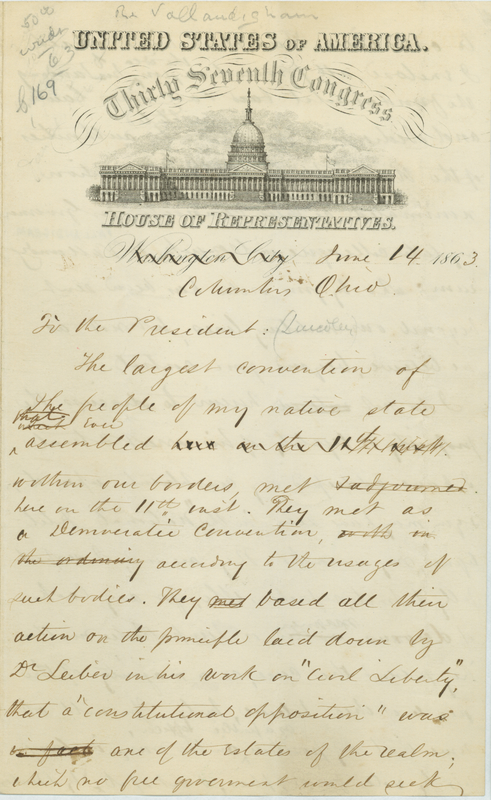 The Vallandigham
5000
words
63
169
UNITED STATES OF AMERICA.
Thirty Seventh Congress
HOUSE OF REPRESENTATIVES.
Washington City June 14. 1863.
Columbus Ohio.
To the President: (Lincoln)
The largest convention of
the people of my native state
that ever
assembled here on the 11th inst.
within our borders, met & adjourned
here on the 11th inst. They met as
a Democratic Convention, with in
the ordinary according to the usages of
such bodies. They met based all their
action on the principle laid down by
Dr Leiber in his work on "Civil Liberty",
that a "constitutional opposition" was
in fact one of the estates of the realm;
which no free government would seek